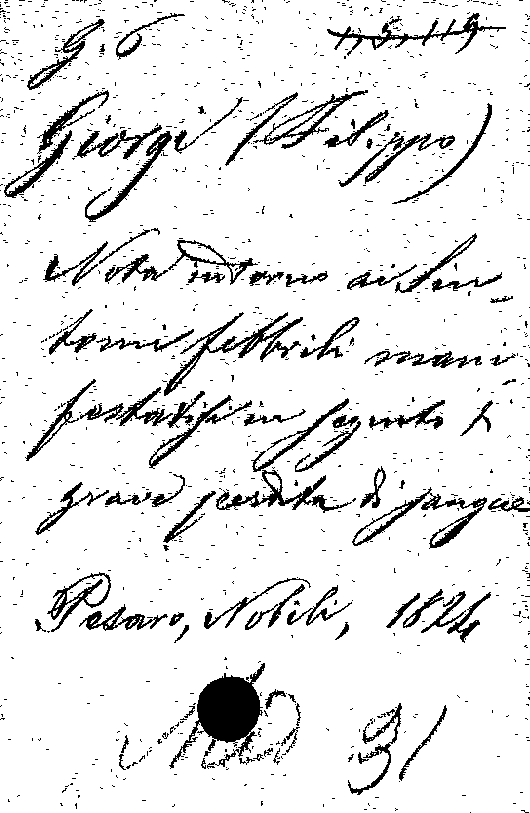 G. 6 1, 5, 119
Giorgi (Filippo)
Nota intorno ai Sin-
tomi febbrili mani-
festatisi in seguito di
grave perdita di sangue
Pesaro, Nobili, 1824
31